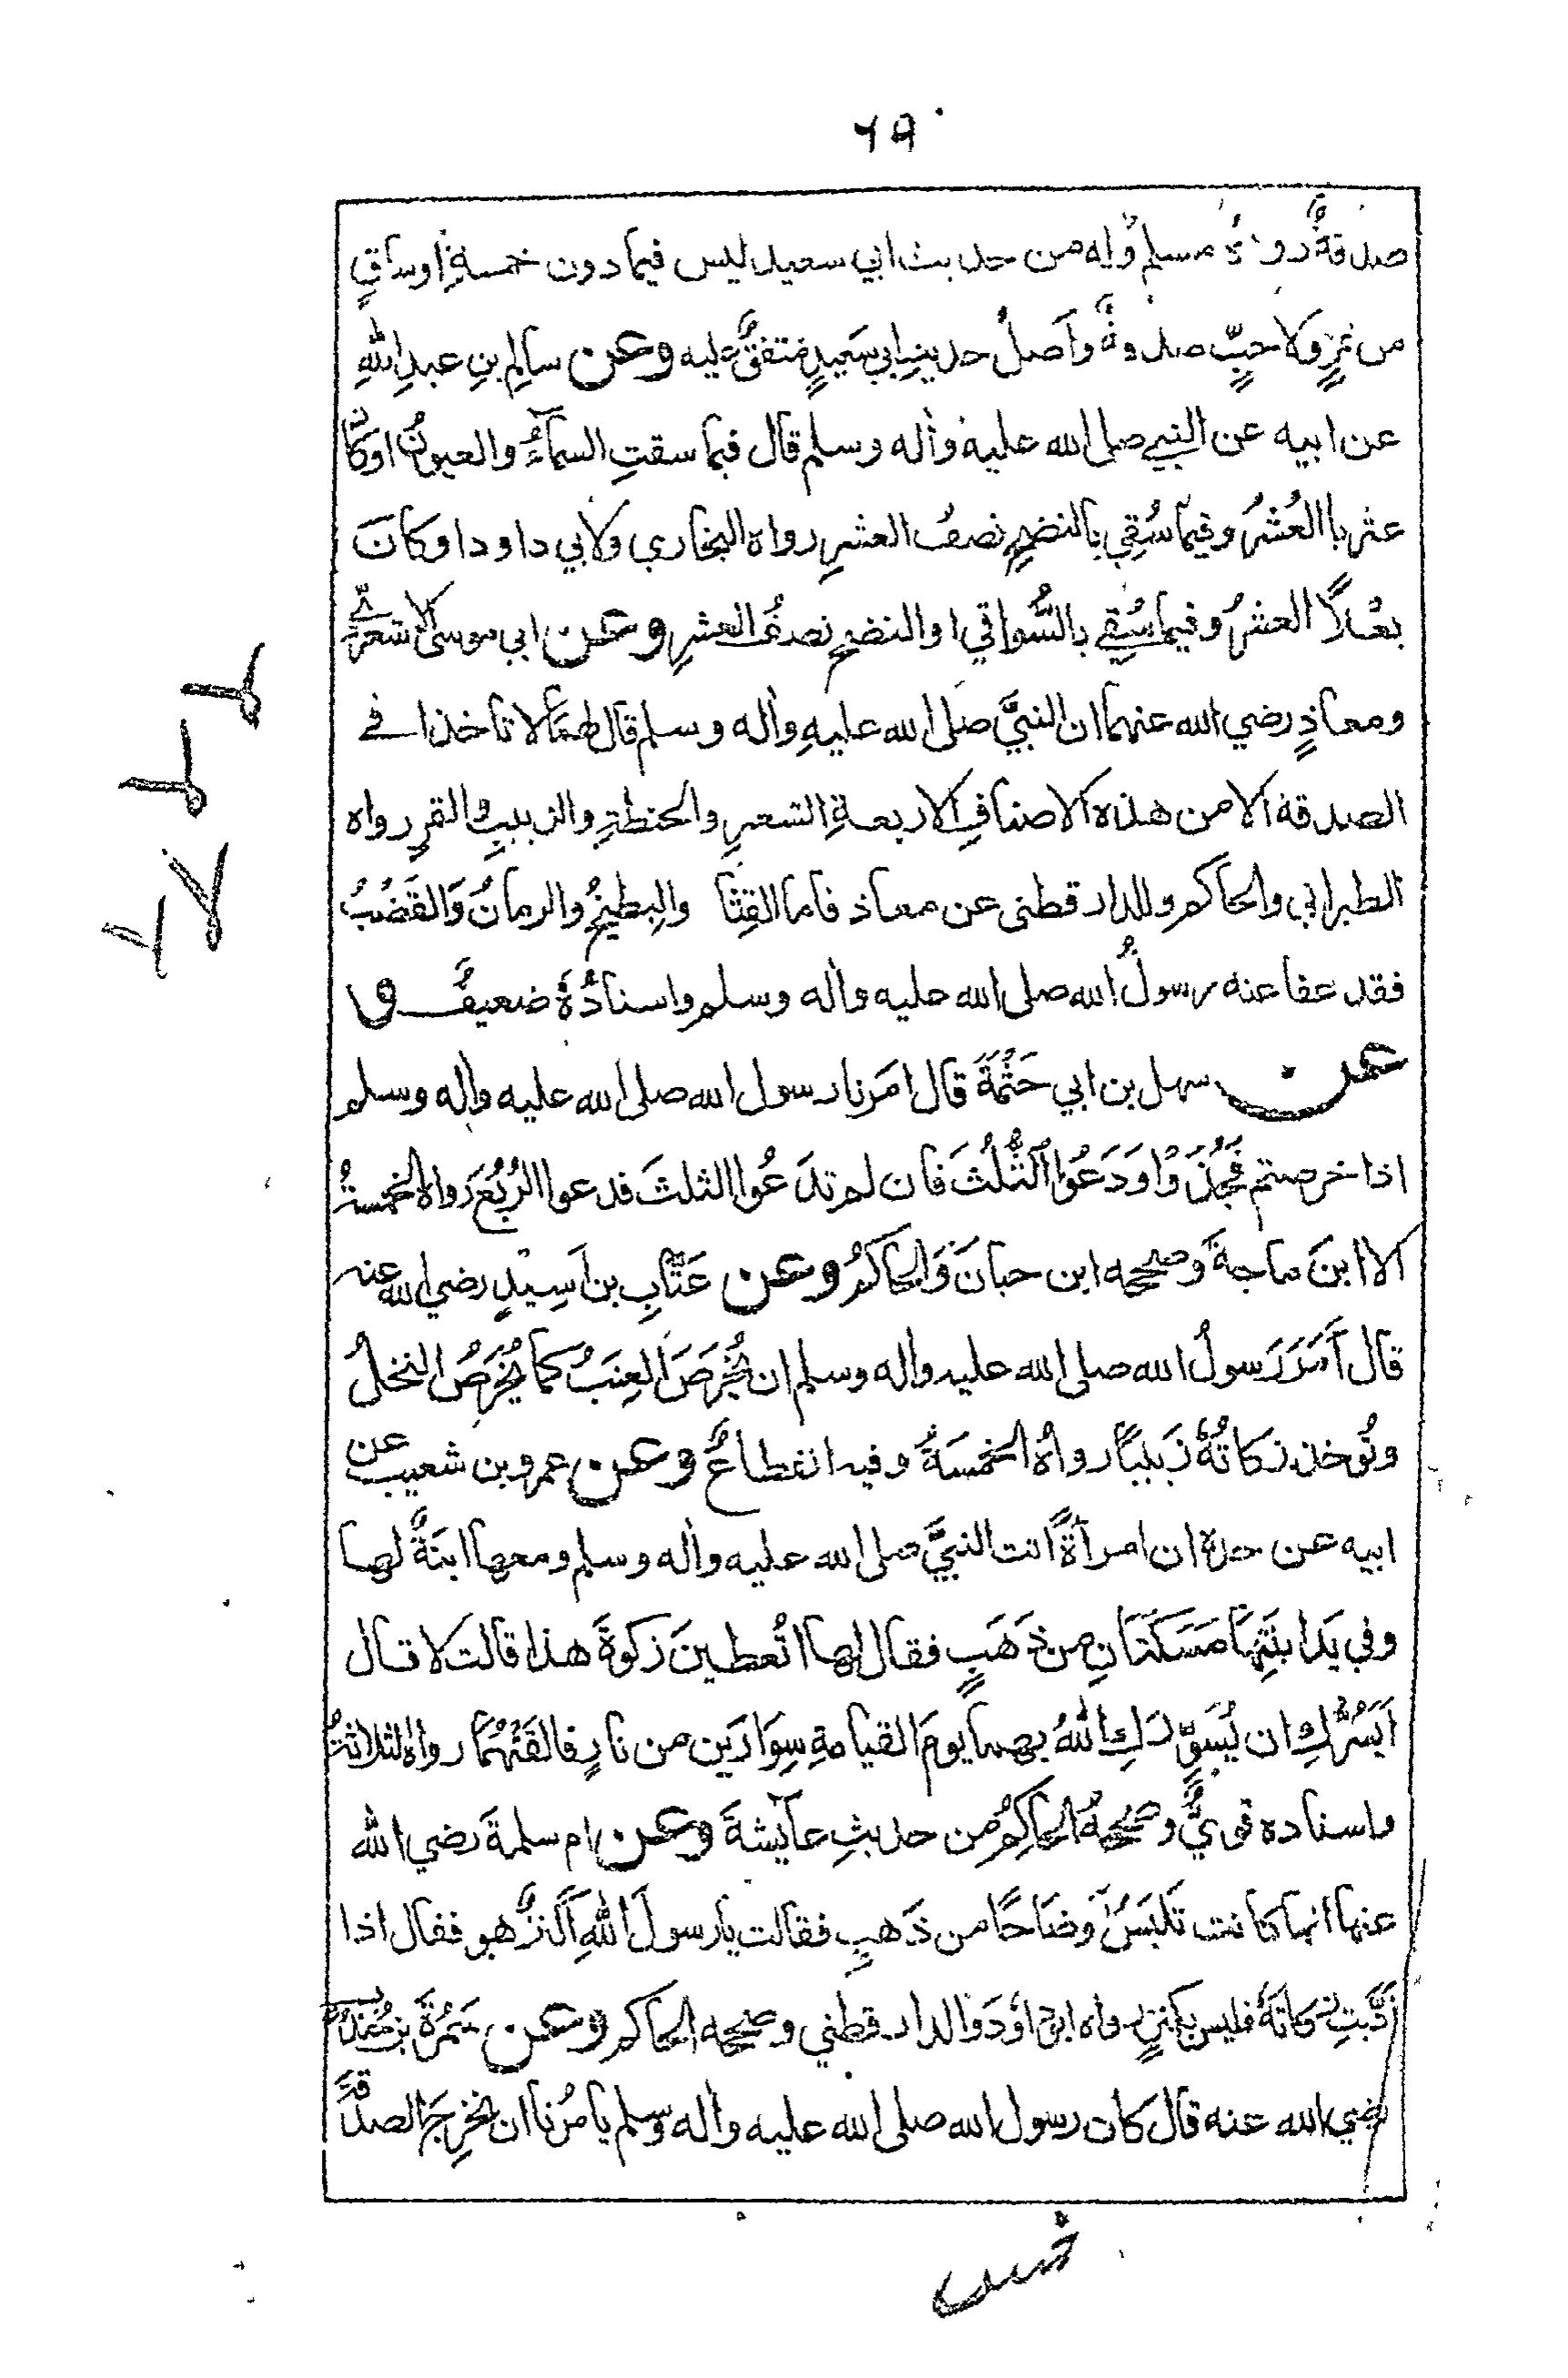 ٦٩
صدقةٌ رواهُ مسلم وله من حديث ابي سعيد ليس فيما دون خمسةِ اوساقٍ
من تمرٍ ولا حبٍّ صدقةٌ وأصلُ حديثِ ابي سعيدٍ متفقٌ عليه وعن سالِمِ بنِ عبدِ اللهِ
عن ابيه عن النبي صلى الله عليه واٰله وسلم قال فيما سقتِ السماءُ والعيونُ اوكانَ
عثريا العُشْرُ وفيما سُقِي بالنضحِ نصفُ العشرِ رواه البخاري ولابي داود اوكانَ
بعْلاً العشرُ وفيما سُقِي بالسَّواقي اوالنضحِ نصفُ العشرِ وعن ابي موسى الاشعريّ
ومعاذٍ رضي الله عنهما ان النبيَّ صلى الله عليهِ واٰله وسلم قال لهمَا لا تاخذا في
الصدقة الا من هذه الاصنافِ الاربعةِ الشعيرِ والحنطةِ والزبيبِ والتمرِ رواه
الطبراني والحاكم وللدارقطنى عن معاذ فاما القِثا والبِطيخُ والرمانُ وَالقَضْبُ
فقد عفا عنه رسولُ الله صلى الله عليه واٰله وسلم واسنادُهٗ ضعيفٌ و
عن سهل بن ابي حَثْمَةَ قال امَرنا رسول الله صلى الله عليه واٰله وسلم
اذا خرصتم فَجُذُوْا وَدَعُوا الثُّلُثَ فان لم تدَعُوا الثلثَ فدعوا الرُبُعَ رواه الخمسةُ
الا ابنَ ماجةَ وصححه ابن حبانَ وَالحاكمُ وعن عَتَّابِ بن اَسِيْدٍ رضي الله عنه
قال اَمَرَ رَسولُ الله صلى الله عليه واٰله وسلم ان يُخْرَصَ العِنَبُ كما يُخْرَصُ النخلُ
وتُوخذ زكاتُهٗ زَبيباً رواهُ الخمسَةُ وفيه انقطاعٌ وعن عمرو بن شعيب عن
ابيه عن جده ان امرأةً اتت النبيَّ صلى الله عليه واٰله وسلم ومعها ابنَةٌ لها
وفي يَدِ ابنَتِهَا مَسَكَتَانِ من ذَهَبٍ فقال لها اتُعطينَ زكوةَ هذا قالت لا قال
اَيَسُرُّكِ ان يُسَوِّرَكِ اللهُ بهما يومَ القيامةِ سِوَارَين من نارٍ فالقَتْهُمَا رواه الثلاثةُ
واسناده قويٌّ وصححهُ الحاكِمُ من حديثِ عايشةَ وعن ام سلمةَ رضي الله
عنها انها كانت تَلبَسُ اَوضَاحًا من ذَهبٍ فقالت يارسولَ اللهِ اَكَنزٌ هو فقال اذا
اَدَّيتِ زكاتَهٗ فليس بكنزٍ رواه ابو داودَ والدارقطني وصححه الحاكم وعن سَمُرَةَ بن جُندُبٍ
رضي الله عنه قال كان رسول الله صلى الله عليه واٰله وسلم يامُرنا ان نخرجَ الصدقَةَ